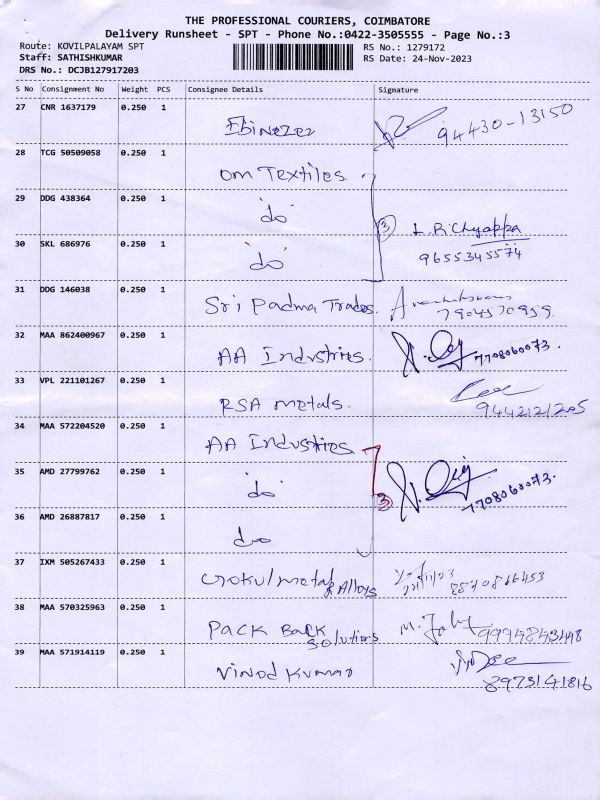 THE PROFESSIONAL COURIERS, COIMBATORE
Delivery Runsheet - SPT - Phone No.:0422-3505555 - Page No.:3
Route: KOVILPALAYAM SPT RS No.: 1279172
Staff: SATHISHKUMAR RS Date: 24-Nov-2023
DRS No.: DCJB127917203
S No Consignment No Weight PCS Consignee Details Signature
27 CNR 1637179 0.250 1 Ebinezer 94430-13150
28 TCG 50509058 0.250 1 Om Textiles.
29 DDG 438364 0.250 1 "do"
3 L.R. Chyappa
30 SKL 686976 0.250 1 "do" 9655345574
31 DDG 146038 0.250 1 Sri Padma Trades. 7904570959.
32 MAA 862400967 0.250 1 AA Industries. 7708060073.
33 VPL 221101267 0.250 1 RSA metals. 9442121205
34 MAA 572204520 0.250 1 AA Industries
35 AMD 27799762 0.250 1 'do' 3 7708060073.
36 AMD 26887817 0.250 1 do
37 IXM 505267433 0.250 1 Gokul metal & Alloys
38 MAA 570325963 0.250 1 Pack Back Solutions 9994843148
39 MAA 571914119 0.250 1 Vinod Kumar 8973141816